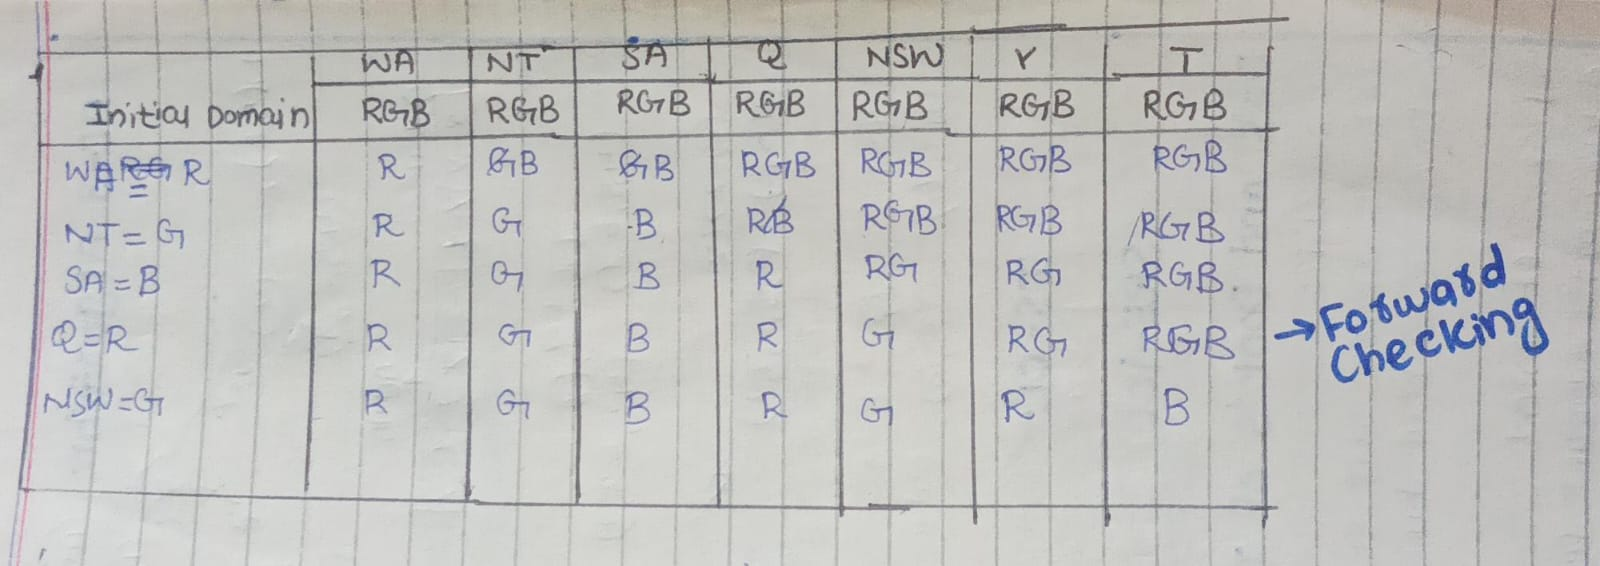 WA NT SA Q NSW V T
Initial Domain RGB RGB RGB RGB RGB RGB RGB
WA R R GB GB RGB RGB RGB RGB
NT = G R G B RB RGB RGB RGB
SA = B R G B R RG RG RGB
Q = R R G B R G RG RGB
NSW = G R G B R G R B
→ Forward
Checking